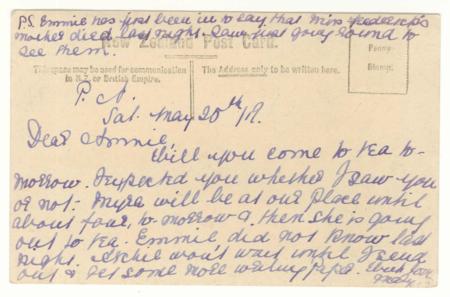 P.S. Emmie has just been in to say that Miss
mother died last night. I am just going round to
see them.
New Zealand Post Card.
This space may be used for communication
to N.Z. or British Empire.
The Address only to be written here.
Penny
Stamp.
P. N.
Sat. May 20th /19.
Dear Annie,
Will you come to tea to-
morrow. I expected you whether I saw you
or not. Myra will be at our place until
about four, to-morrow & then she is going
out to tea. Emmie did not know last
night. Archie won't wait until I
out & get some more writing paper. With love
Mary.